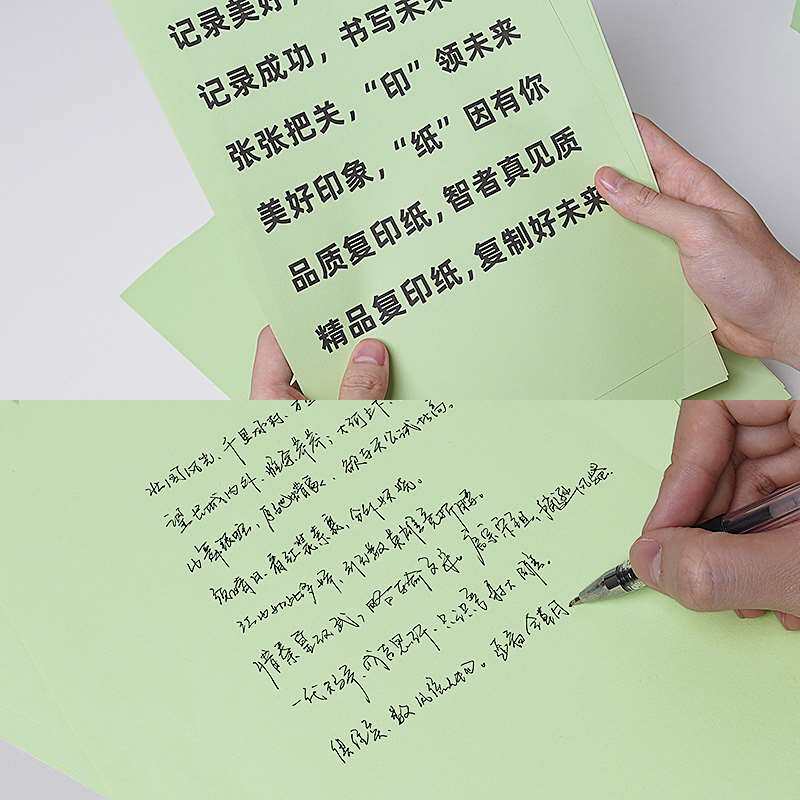 记录美好,
记录成功，书写未来
张张把关，“印”领未来
美好印象，“纸”因有你
品质复印纸，智者真见质
精品复印纸，复制好未来
北国风光，千里冰封，万里
望长城内外，惟余莽莽；大河上下，
欲与天公试比高。
须晴日，看红装素裹，分外妖娆。
江山如此多娇，引无数英雄竞折腰。
惜秦皇汉武，略输文采。唐宗宋祖，
一代天骄，成吉思汗，只识弯弓大雕。
俱往矣，数风流人物，